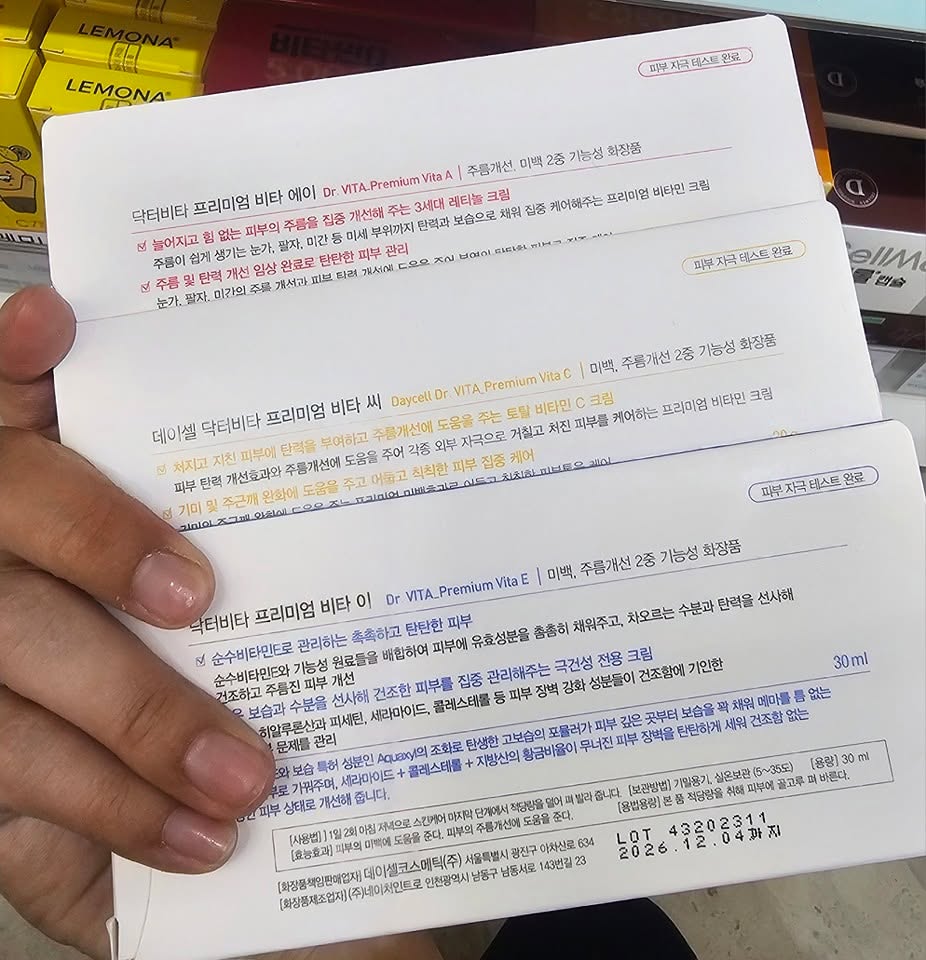 LEMONA
LEMONA
피부 자극 테스트 완료
닥터비타 프리미엄 비타 에이 Dr. VITA_Premium Vita A | 주름개선, 미백 2중 기능성 화장품
늘어지고 힘 없는 피부의 주름을 집중 개선해 주는 3세대 레티놀 크림
주름이 쉽게 생기는 눈가, 팔자, 미간 등 미세 부위까지 탄력과 보습으로 채워 집중 케어해주는 프리미엄 비타민 크림
주름 및 탄력 개선 임상 완료로 탄탄한 피부 관리
눈가, 팔자, 미간의 주름 개선과 피부 탄력 개선에 도움을 주어
피부 자극 테스트 완료
데이셀 닥터비타 프리미엄 비타 씨 Daycell Dr. VITA_Premium Vita C | 미백, 주름개선 2중 기능성 화장품
처지고 지친 피부에 탄력을 부여하고 주름개선에 도움을 주는 토탈 비타민 C 크림
피부 탄력 개선효과와 주름개선에 도움을 주어 각종 외부 자극으로 거칠고 처진 피부를 케어하는 프리미엄 비타민 크림
기미 및 주근깨 완화에 도움을 주고 어둡고 칙칙한 피부 집중 케어
피부 자극 테스트 완료
닥터비타 프리미엄 비타 이 Dr VITA_Premium Vita E | 미백, 주름개선 2중 기능성 화장품
순수비타민E로 관리하는 촉촉하고 탄탄한 피부
순수비타민E와 기능성 원료들을 배합하여 피부에 유효성분을 촘촘히 채워주고, 차오르는 수분과 탄력을 선사해
건조하고 주름진 피부 개선
보습과 수분을 선사해 건조한 피부를 집중 관리해주는 극건성 전용 크림
히알루론산과 피세틴, 세라마이드, 콜레스테롤 등 피부 장벽 강화 성분들이 건조함에 기인한
문제를 관리
30 ml
와 보습 특허 성분인 Aquaxyl의 조화로 탄생한 고보습의 포뮬러가 피부 깊은 곳부터 보습을 꽉 채워 메마를 틈 없는
로 가꿔주며, 세라마이드 + 콜레스테롤 + 지방산의 황금비율이 무너진 피부 장벽을 탄탄하게 세워 건조함 없는
피부 상태로 개선해 줍니다.
[사용법] 1일 2회 아침 저녁으로 스킨케어 마지막 단계에서 적당량을 덜어 펴 발라 줍니다. [보관방법] 기밀용기, 실온보관 (5~35도) [용량] 30 ml
[효능효과] 피부의 미백에 도움을 준다. 피부의 주름개선에 도움을 준다. [용법용량] 본 품 적당량을 취해 피부에 골고루 펴 바른다.
[화장품책임판매업자] 데이셀코스메틱(주) 서울특별시 광진구 아차산로 634
[화장품제조업자] (주)네이처인트로 인천광역시 남동구 남동서로 143번길 23
LOT 43202311
2026.12.04까지
캡슐